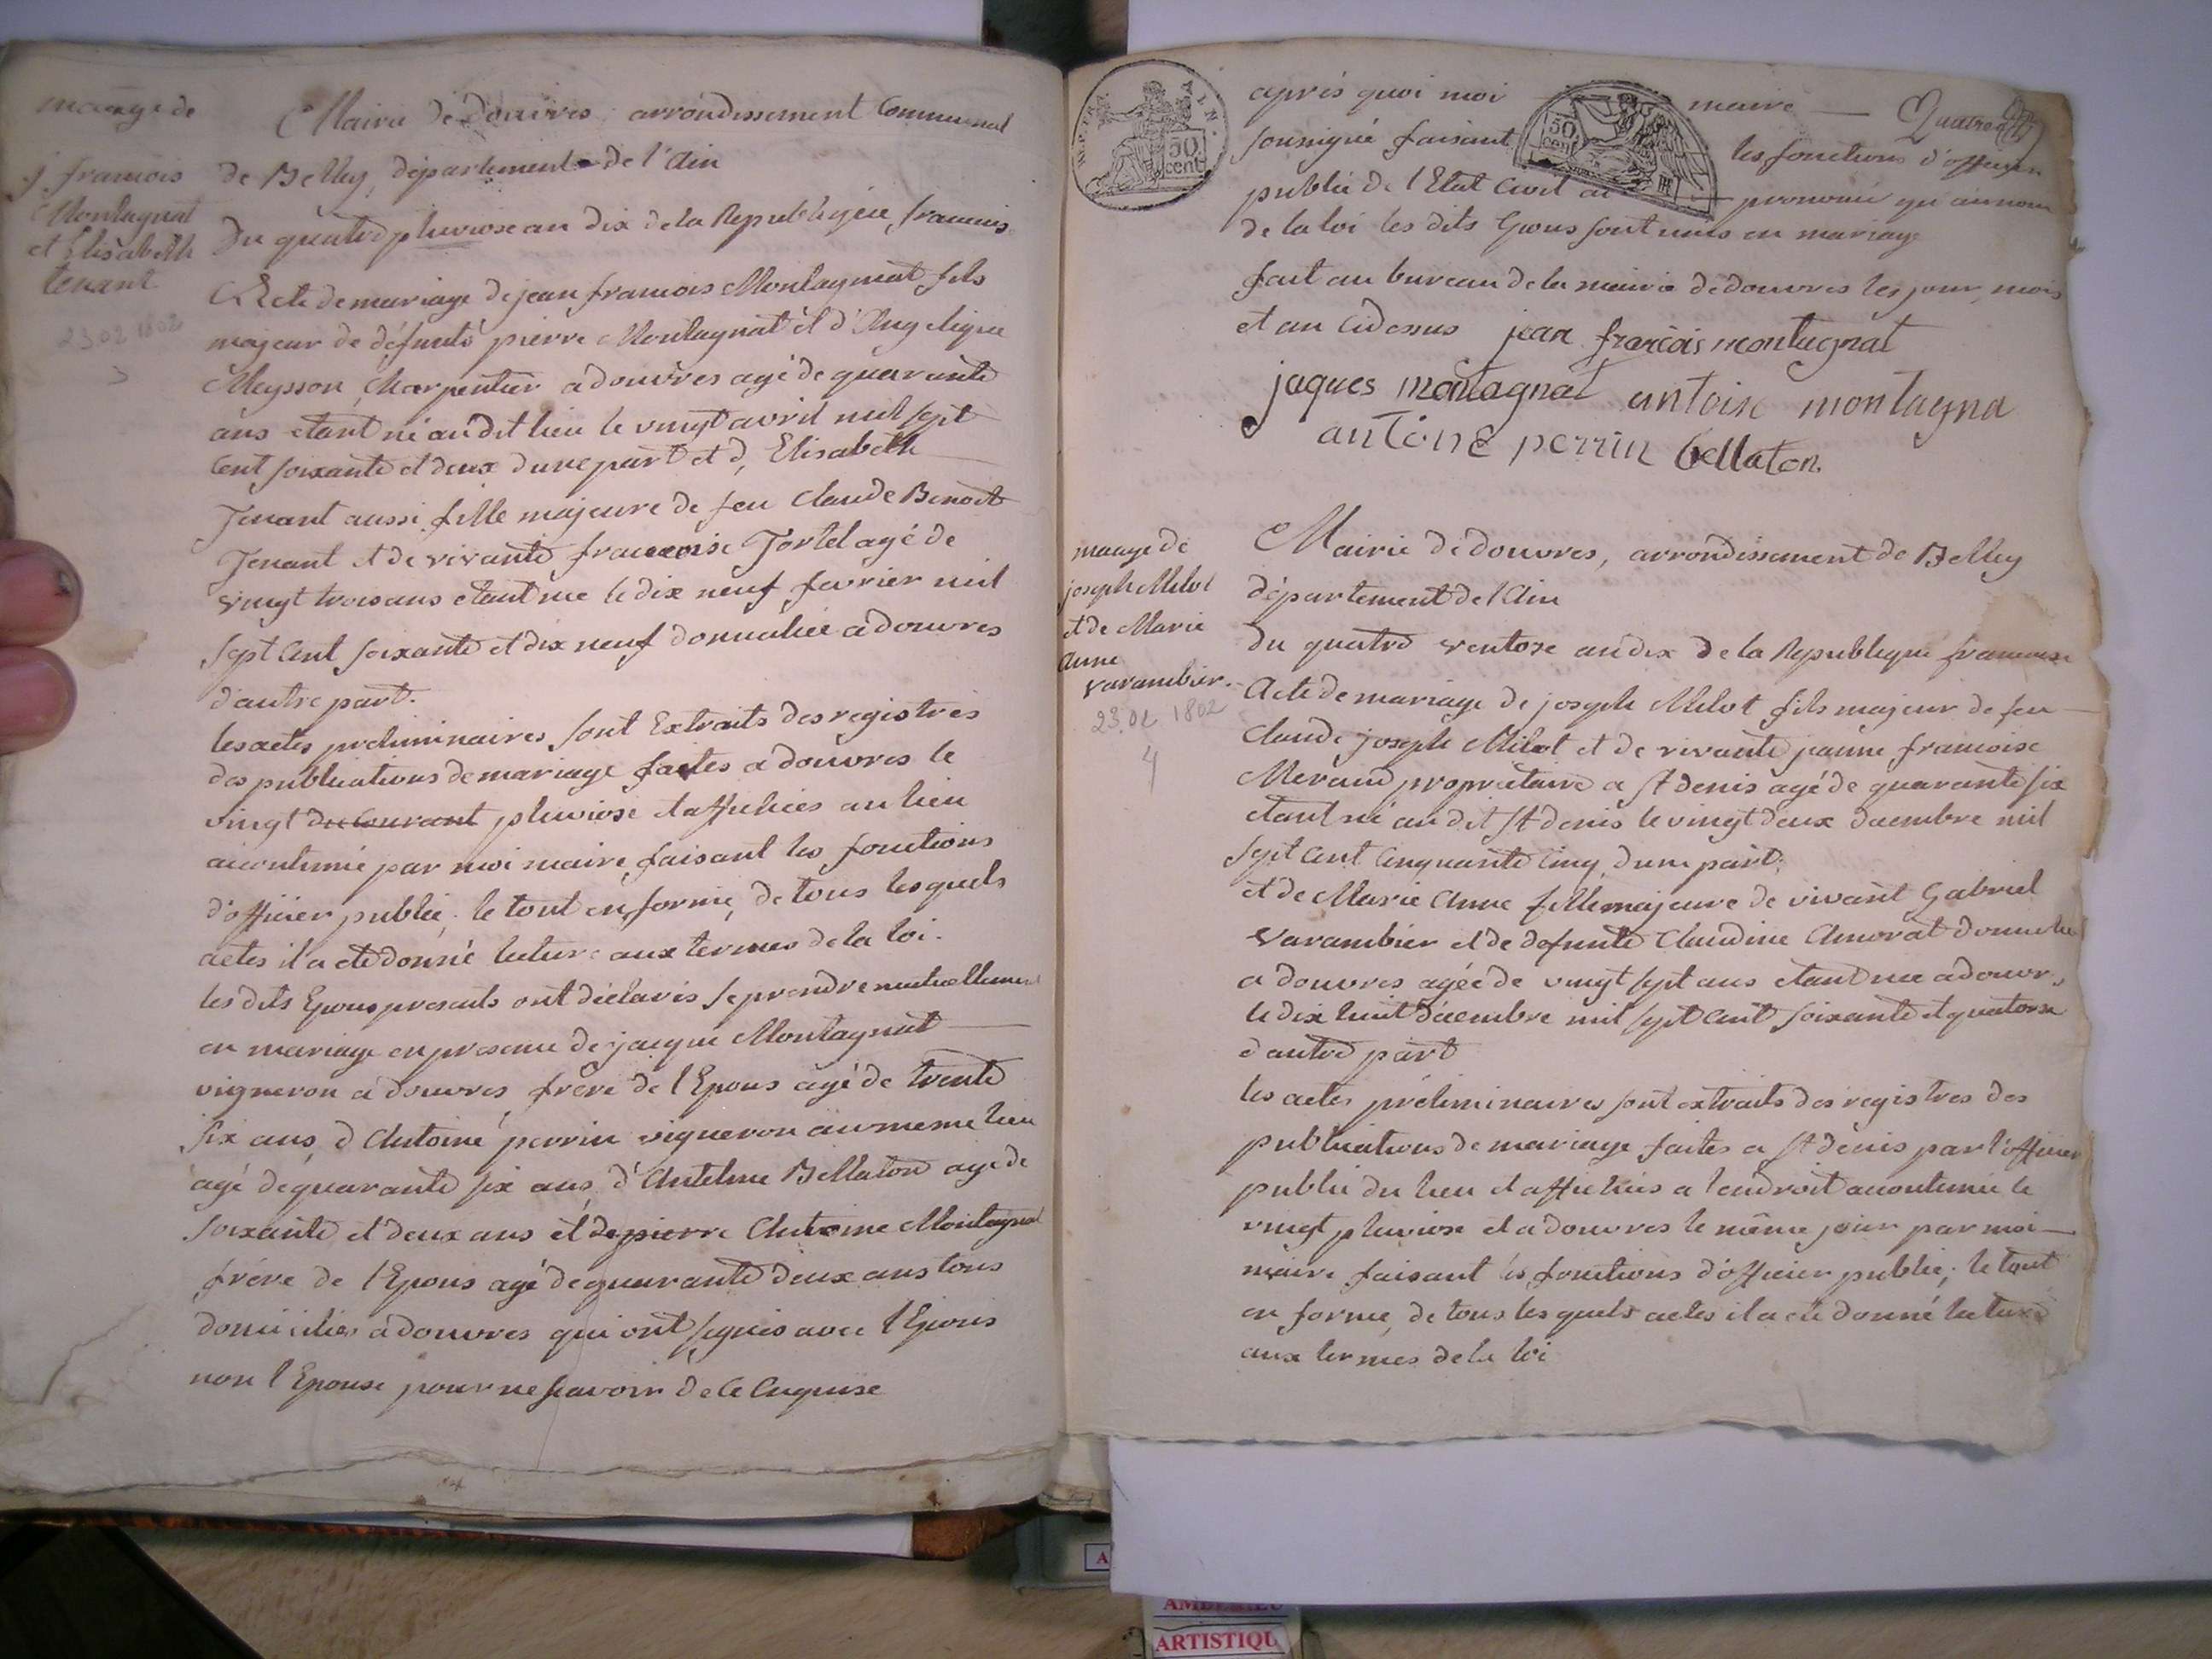 mariage de
j françois
Montagnat
et Elisabeth
tenant
23 02 1802
3
Mairie de douvres, arrondissement Communal
de Belley, département de l'Ain
Du quatre pluviose an dix de la Republique francois
Acte de mariage de jean francois Montagnat fils
majeur de défunts pierre Montagnat et d'Angelique
Meysson, Charpentier a douvres agé de quarante
ans etant né au dit lieu le vingt avril mil sept
Cent soixante et deux dune part et d, Elisabeth
Tenant aussi fille majeure de feu Claude Benoit
Tenant et de vivante francoise Tortel agé de
vingt trois ans etant née le dix neuf fevrier mil
sept Cent soixante et dix neuf domiciliée a douvres
d'autre part.
les actes preliminaires sont Extraits des registres
des publications de mariage faites a douvres le
vingt du Courant pluviose et affichées au lieu
accoutumé par moi maire, faisant les fonctions
d'officier public, le tout en forme, de tous lesquels
actes il a eté donné lecture aux termes de la loi.
les dits Epoux presents ont déclarés se prendre mutuellement
en mariage en presence de jacque Montagnat
vigneron a douvres, frere de l'Epoux agé de trente
six ans, d'Antoine perrin vigneron au meme lieu
agé de quarante six ans, d'Antelme Bellaton agé de
soixante et deux ans et de pierre Antoine Montagnat
frére de l'Epoux agé de quarante deux ans tous
domiciliés a douvres qui ont signés avec l'Epoux
non l'Epouse pour ne scavoir de ce enquise
REP. FRA.
50
cent
après quoi moi maire Quatre
50
cent
soussigné faisant les fonctions d'officier
public de l'Etat Civil ai prononcé qu'au nom
de la loi les dits Epoux sont unis en mariage
fait au bureau de la mairie de douvres les jour, mois
et an cidessus jean françois montagnat
jaques montagnat antoine montagna
antoine perrin bellaton
mariage de
joseph Milot
et de Marie
Anne
varambier.
23.02 1802
4
Mairie de douvres, arrondissement de Belley
département de l'Ain
du quatre ventose an dix de la Republique francoise
Acte de mariage de joseph Milot fils majeur de feu
Claude joseph Milot et de vivante jeanne francoise
propriétaire a St denis agé de quarante six
etant né au dit St denis le vingt deux décembre mil
sept Cent Cinquante Cinq, dune part;
et de Marie Anne fille majeure de vivant Gabriel
varambier et de defunte Claudine Amorat
a douvres agée de vingt sept ans etant née a douvres
le dix huit decembre mil sept Cent soixante et quatorze
d'autre part
les actes préliminaires sont extraits des registres des
publications de mariage faites a St denis par l'officier
public du lieu et affichées a l'endroit accoutumé le
vingt pluviose et a douvres le même jour par moi
maire faisant les fonctions d'officier public; le tout
en forme, de tous les quels actes il a eté donné lecture
aux termes de la loi
A
AMBERIEU
ARTISTIQU